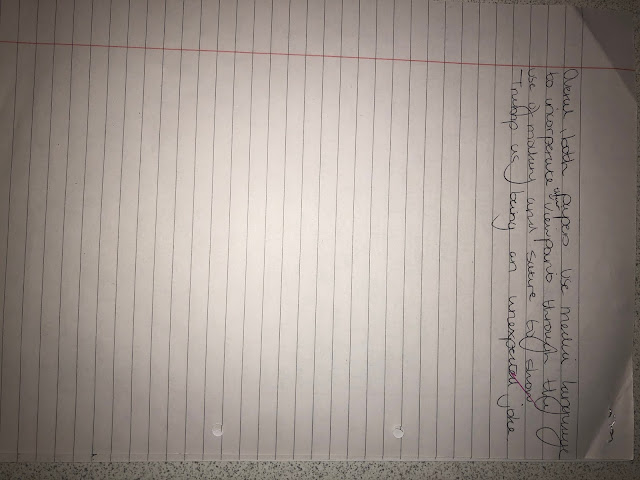 Overall, both papers use media language
to incorperate their viewpoints through the
use of mockery and satire to show
Trump as being an unexpected joke